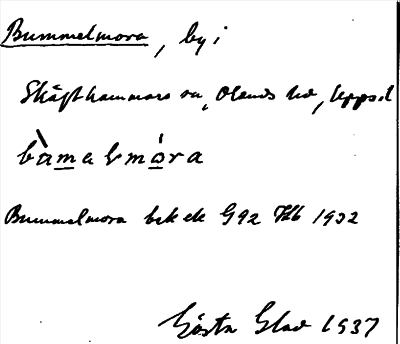 Bummelmora, by i
Skäfthammars sn, Olands hd, Upps. l
bamalmóra
Bummelmora bek ek G 92 1932
Gösta Glad 1937